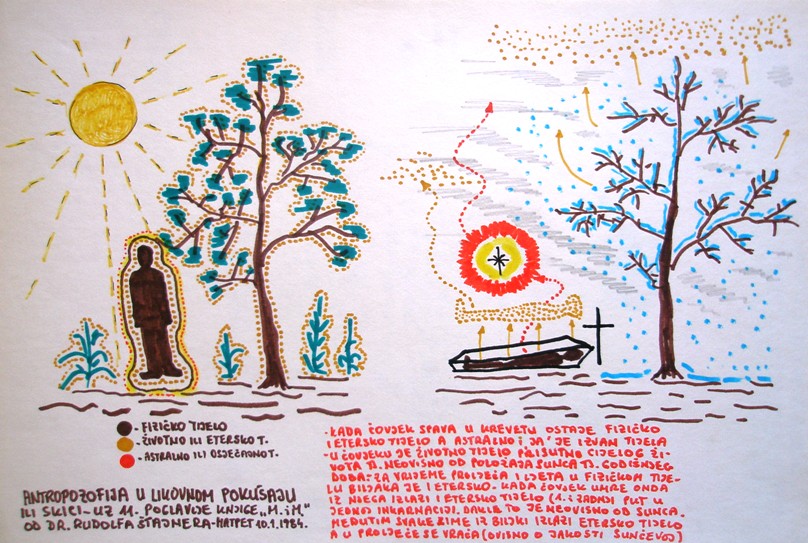 - FIZIČKO TIJELO
- ŽIVOTNO ILI ETERSKO T.
- ASTRALNO ILI OSJEĆAJNO T.
ANTROPOZOFIJA U LIKOVNOM POKUŠAJU
ILI SKICI - UZ 11. POGLAVLJE KNJIGE „M. i M."
OD DR. RUDOLFA ŠTAJNERA - HATPET 10.1.1984.
- KADA ČOVJEK SPAVA U KREVETU OSTAJE FIZIČKO
I ETERSKO TIJELO A ASTRALNO i JA' JE IZVAN TIJELA
- U ČOVJEKU JE ŽIVOTNO TIJELO PRISUTNO CIJELOG ŽI-
VOTA TJ. NEOVISNO OD POLOŽAJA SUNCA TJ. GODIŠNJEG
DOBA: ZA VRIJEME PROLJEĆA I LJETA U FIZIČKOM TIJE-
LU BILJAKA JE I ETERSKO. KADA ČOVJEK UMRE ONDA
IZ NJEGA IZLAZI I ETERSKO TIJELO (1. i ZADNJI PUT U
JEDNOJ INKARNACIJI. DAKLE TO JE NEOVISNO OD SUNCA.
MEĐUTIM SVAKE ZIME IZ BILJKI IZLAZI ETERSKO TIJELO
A U PROLJEĆE SE VRAĆA (OVISNO O JAKOSTI SUNČEVOJ)